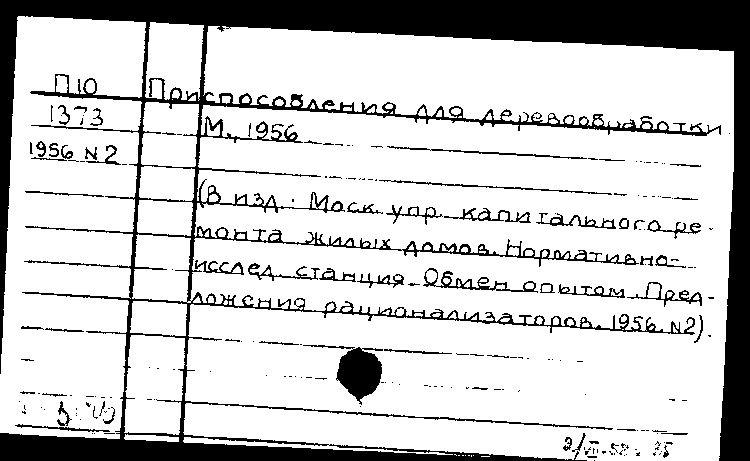 П10 Приспособления для деревообработки
1373 М., 1956
1956 N2
(В изд. Моск. упр. капитального ре-
монта жилых домов. Нормативно-
исслед. станция. Обмен опытом. Пред-
ложения рационализаторов. 1956. N2).
2/VII-58.